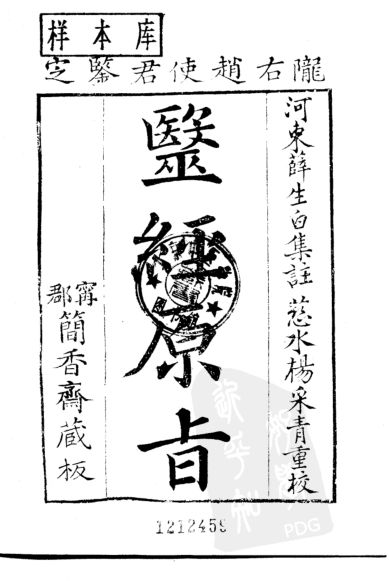 样本库
隴右趙使君鑒定
河東薛生白集註 慈水楊采青重校
醫經原旨
甯郡
簡香齋藏板
1212459
PDG